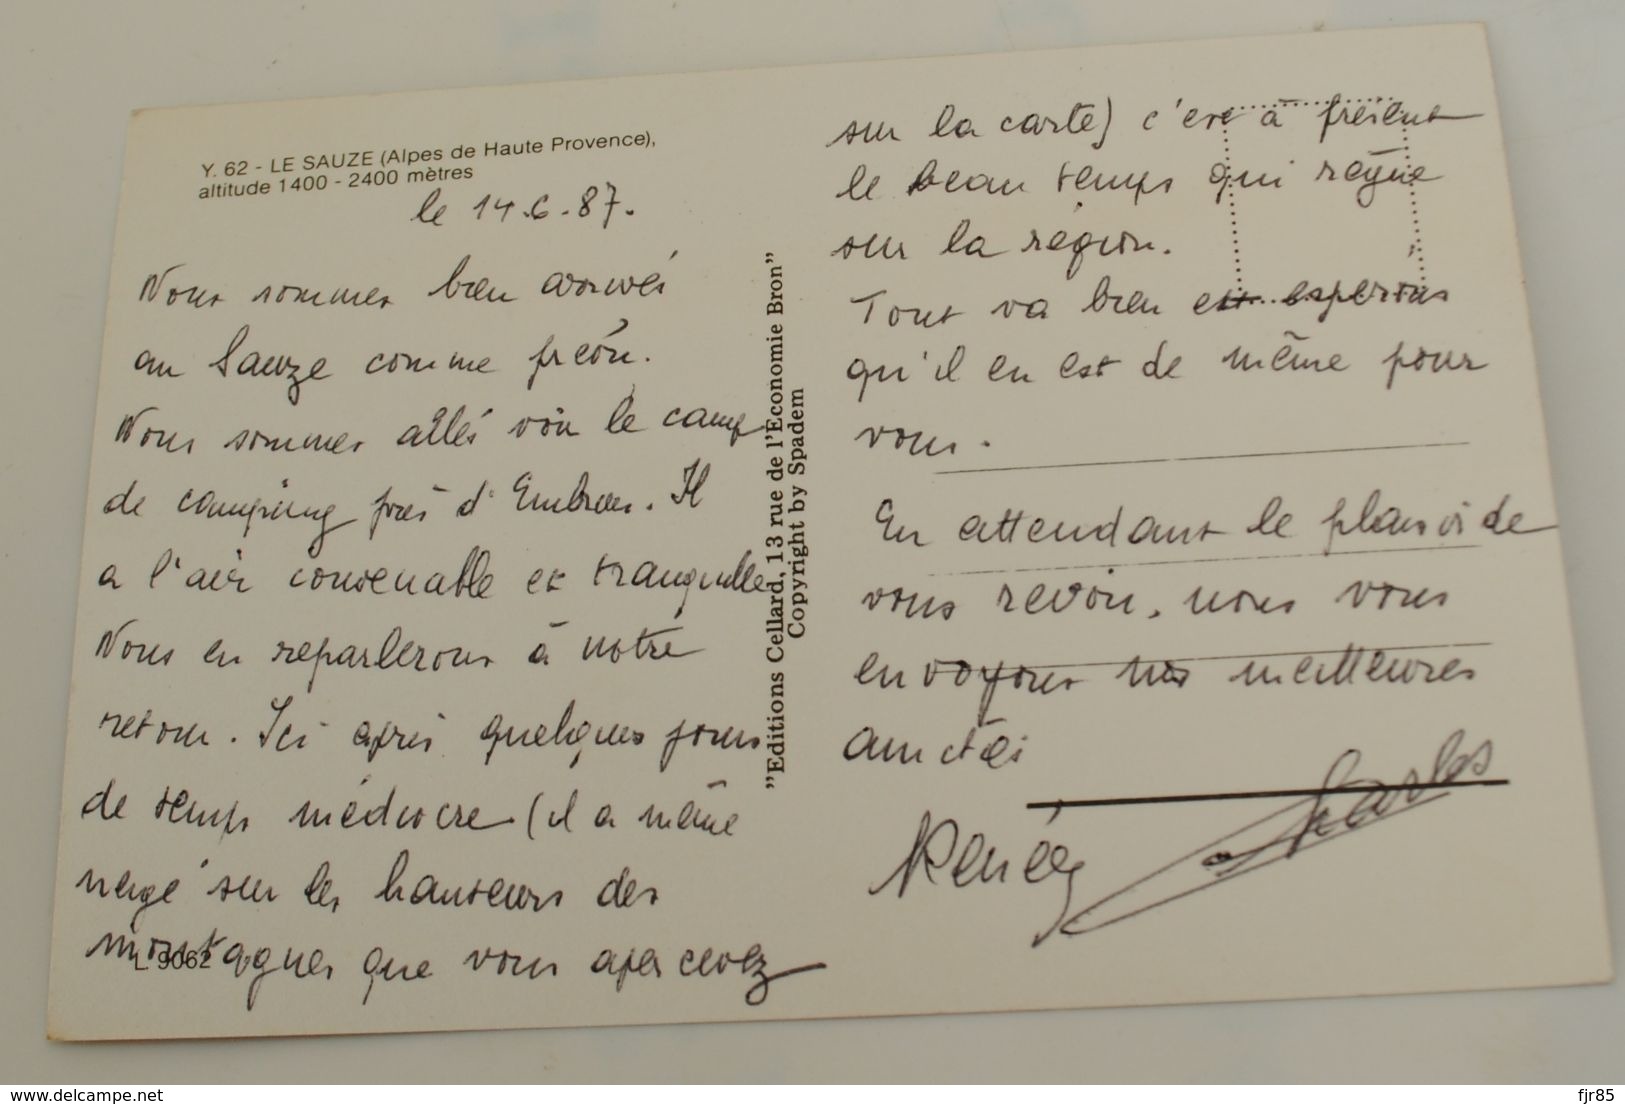 Y. 62 - LE SAUZE (Alpes de Haute Provence),
altitude 1400 - 2400 mètres
le 14.6.87.
Nous sommes bien arrivés
au Sauze comme prévu.
Nous sommes allés voir le camp
de camping près d'Embrun. Il
a l'air convenable et tranquille
Nous en reparlerons à notre
retour. Ici après quelques jours
de temps médiocre (il a même
neigé sur les hauteurs des
montagnes que vous apercevez
L 9062
"Editions Cellard, 13 rue de l'Economie Bron"
Copyright by Spadem
sur la carte) c'est à présent
le beau temps qui règne
sur la région.
Tout va bien et espérons
qu'il en est de même pour
vous.
En attendant le plaisir de
vous revoir, nous vous
envoyons nos meilleures
amitiés
Renée
Charles
delcampe.net
fjr85